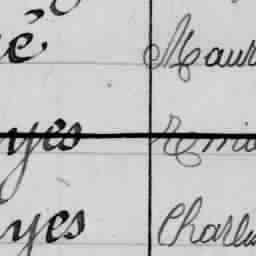 é Maur
yes Emil
yes Charles